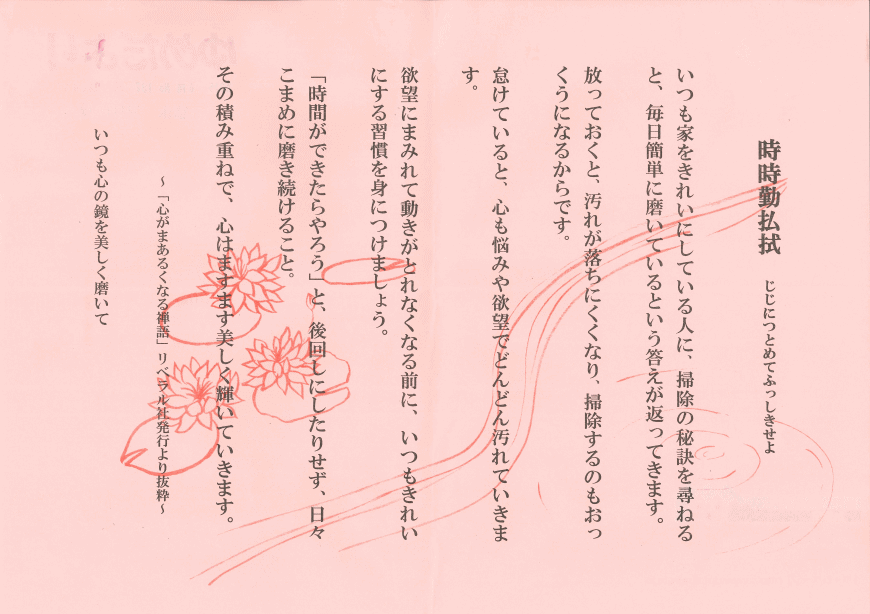 時時勤払拭 じじにつとめてふっしきせよ
いつも家をきれいにしている人に、掃除の秘訣を尋ねる
と、毎日簡単に磨いているという答えが返ってきます。
放っておくと、汚れが落ちにくくなり、掃除するのもおっ
くうになるからです。
怠けていると、心も悩みや欲望でどんどん汚れていきま
す。
欲望にまみれて動きがとれなくなる前に、いつもきれい
にする習慣を身につけましょう。
「時間ができたらやろう」と、後回しにしたりせず、日々
こまめに磨き続けること。
その積み重ねで、心はますます美しく輝いていきます。
～「心がまあるくなる禅語」リベラル社発行より抜粋～
いつも心の鏡を美しく磨いて